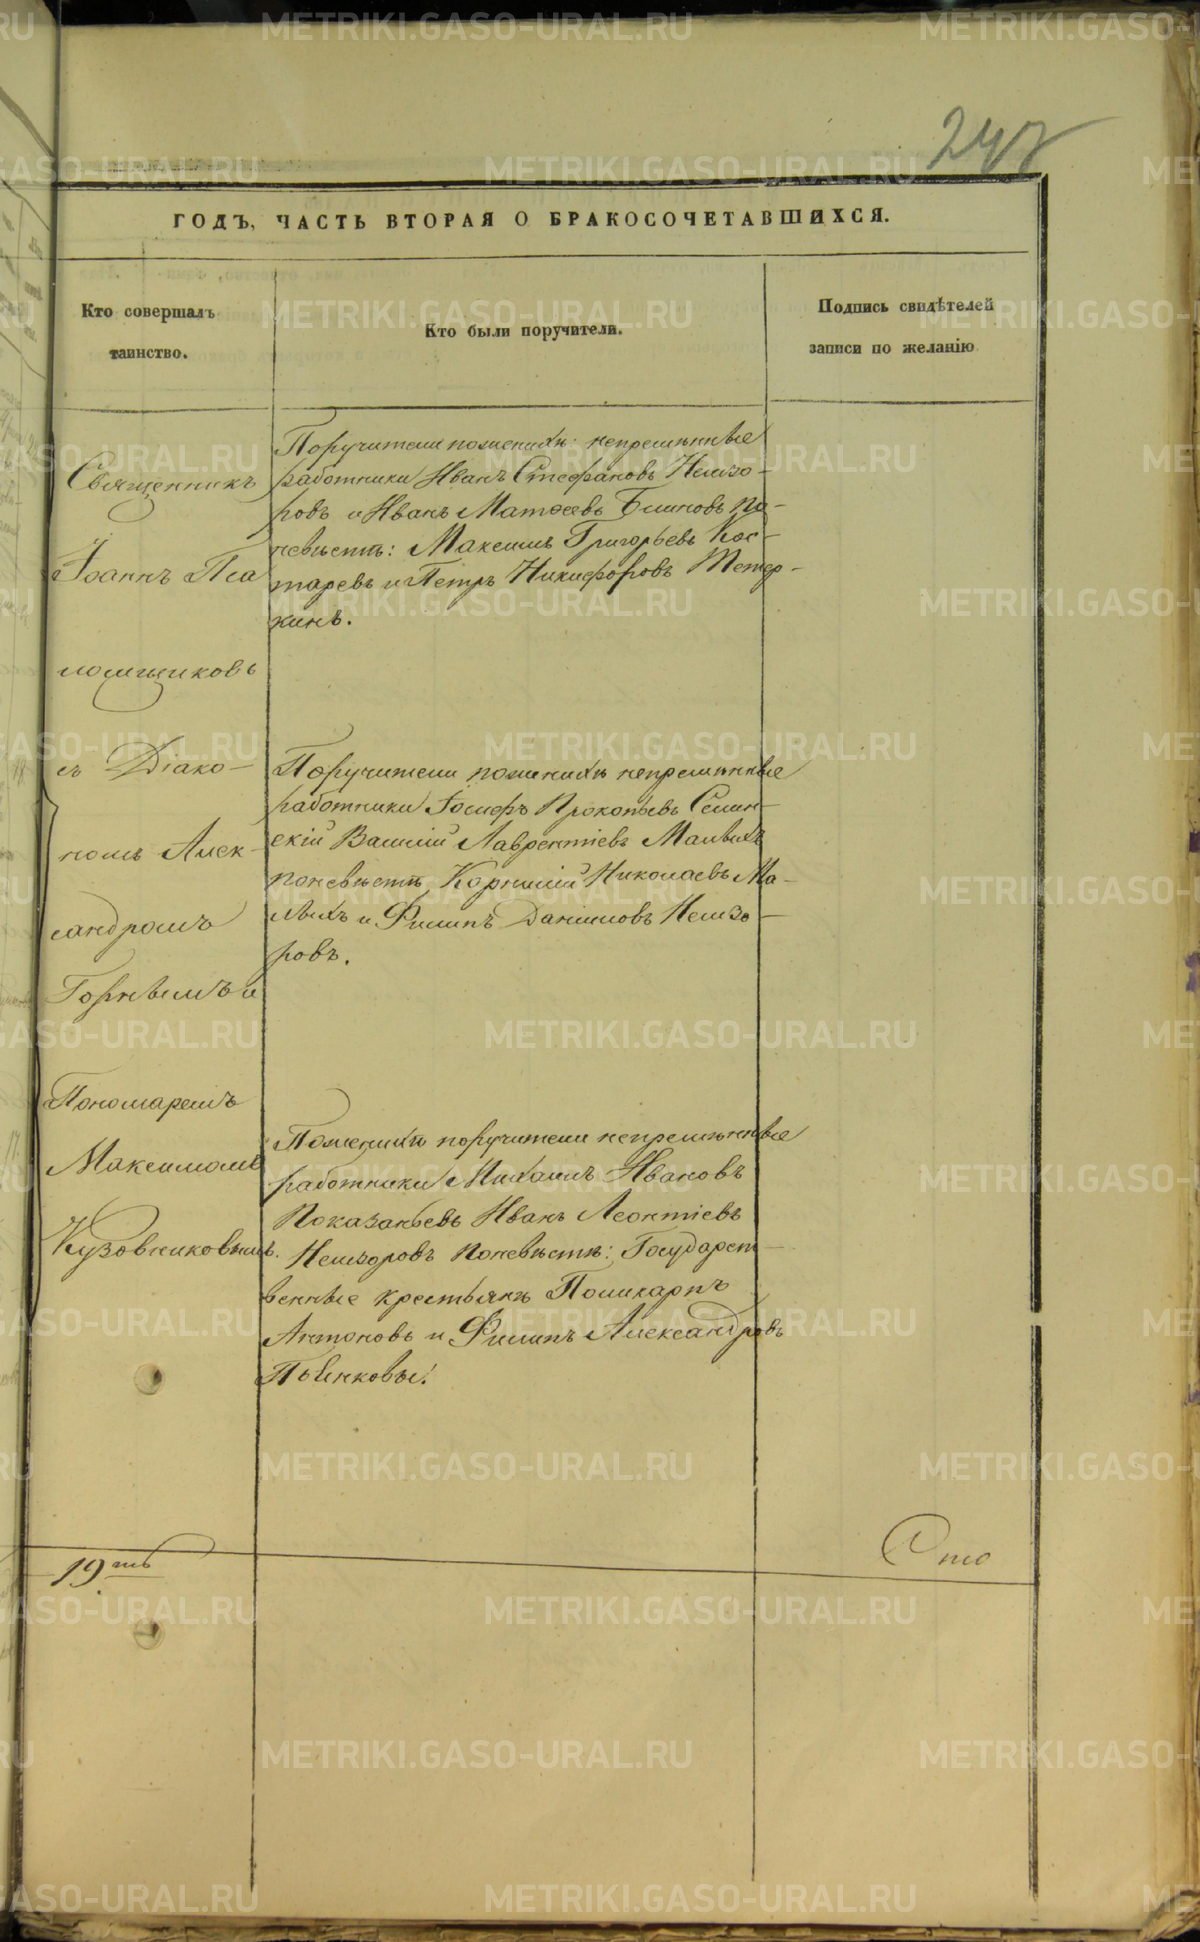 247
ГОДЪ, ЧАСТЬ ВТОРАЯ О БРАКОСОЧЕТАВШИХСЯ.
Кто совершалъ
таинство.
Кто были поручители.
Подпись свидѣтелей
записи по желанію
Священникъ
Іоаннъ Пса
ломщиковъ
съ Діако-
номъ Алек-
сандромъ
Горнымъ и
Пономаремъ
Максимомъ
Кузовниковымъ.
Поручители по женихѣ: непремѣнные
работники Иванъ Стефановъ Немзо-
ровъ и Иванъ Матѳеевъ Блиновъ по
невѣстѣ: Максимъ Григорьевъ Кос-
таревъ и Петръ Никифоровъ Тетер-
кинъ.
Поручители по женихѣ непремѣнные
работники Іосифъ Прокопьевъ Семин-
скій Василій Лаврентіевъ Малыхъ
по невѣстѣ, Корнилій Николаевъ Ма-
лыхъ и Филипъ Даниловъ Немзо-
ровъ.
По женихѣ поручители непремѣнные
работники Михаилъ Ивановъ
Показаньевъ Иванъ Леонтіевъ
Немзоровъ по невѣстѣ: Государст-
венные крестьяне Поликарпъ
Антоновъ и Филипъ Александровъ
Пьянковы.
19ть
Сто
METRIKI.GASO-URAL.RU